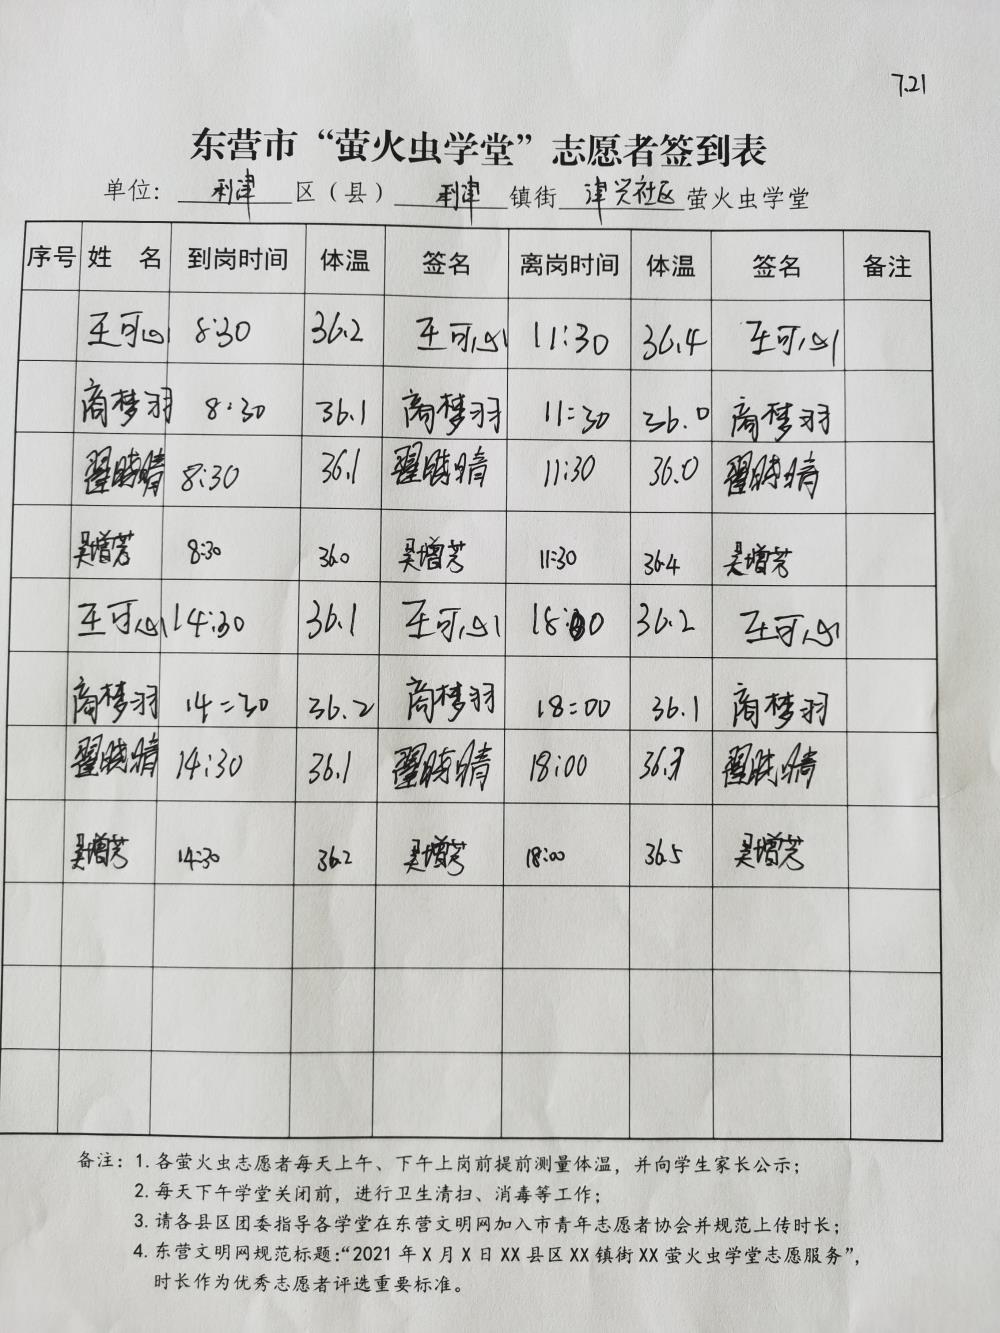 7.21
东营市“萤火虫学堂”志愿者签到表
单位：利津区（县）利津镇街津兴社区萤火虫学堂
序号 姓 名 到岗时间 体温 签名 离岗时间 体温 签名 备注
王可心 8:30 36.2 王可心 11:30 36.4 王可心
商梦羽 8:30 36.1 商梦羽 11:30 36.0 商梦羽
翟晓晴 8:30 36.1 翟晓晴 11:30 36.0 翟晓晴
吴增芳 8:30 36.0 吴增芳 11:30 36.4 吴增芳
王可心 14:30 36.1 王可心 18:00 36.2 王可心
商梦羽 14:30 36.2 商梦羽 18:00 36.1 商梦羽
翟晓晴 14:30 36.1 翟晓晴 18:00 翟晓晴
吴增芳 14:30 36.2 吴增芳 18:00 36.5 吴增芳
备注：1. 各萤火虫志愿者每天上午、下午上岗前提前测量体温，并向学生家长公示；
2. 每天下午学堂关闭前，进行卫生清扫、消毒等工作；
3. 请各县区团委指导各学堂在东营文明网加入市青年志愿者协会并规范上传时长；
4. 东营文明网规范标题：“2021 年 X 月 X 日 XX 县区 XX 镇街 XX 萤火虫学堂志愿服务”，
时长作为优秀志愿者评选重要标准。